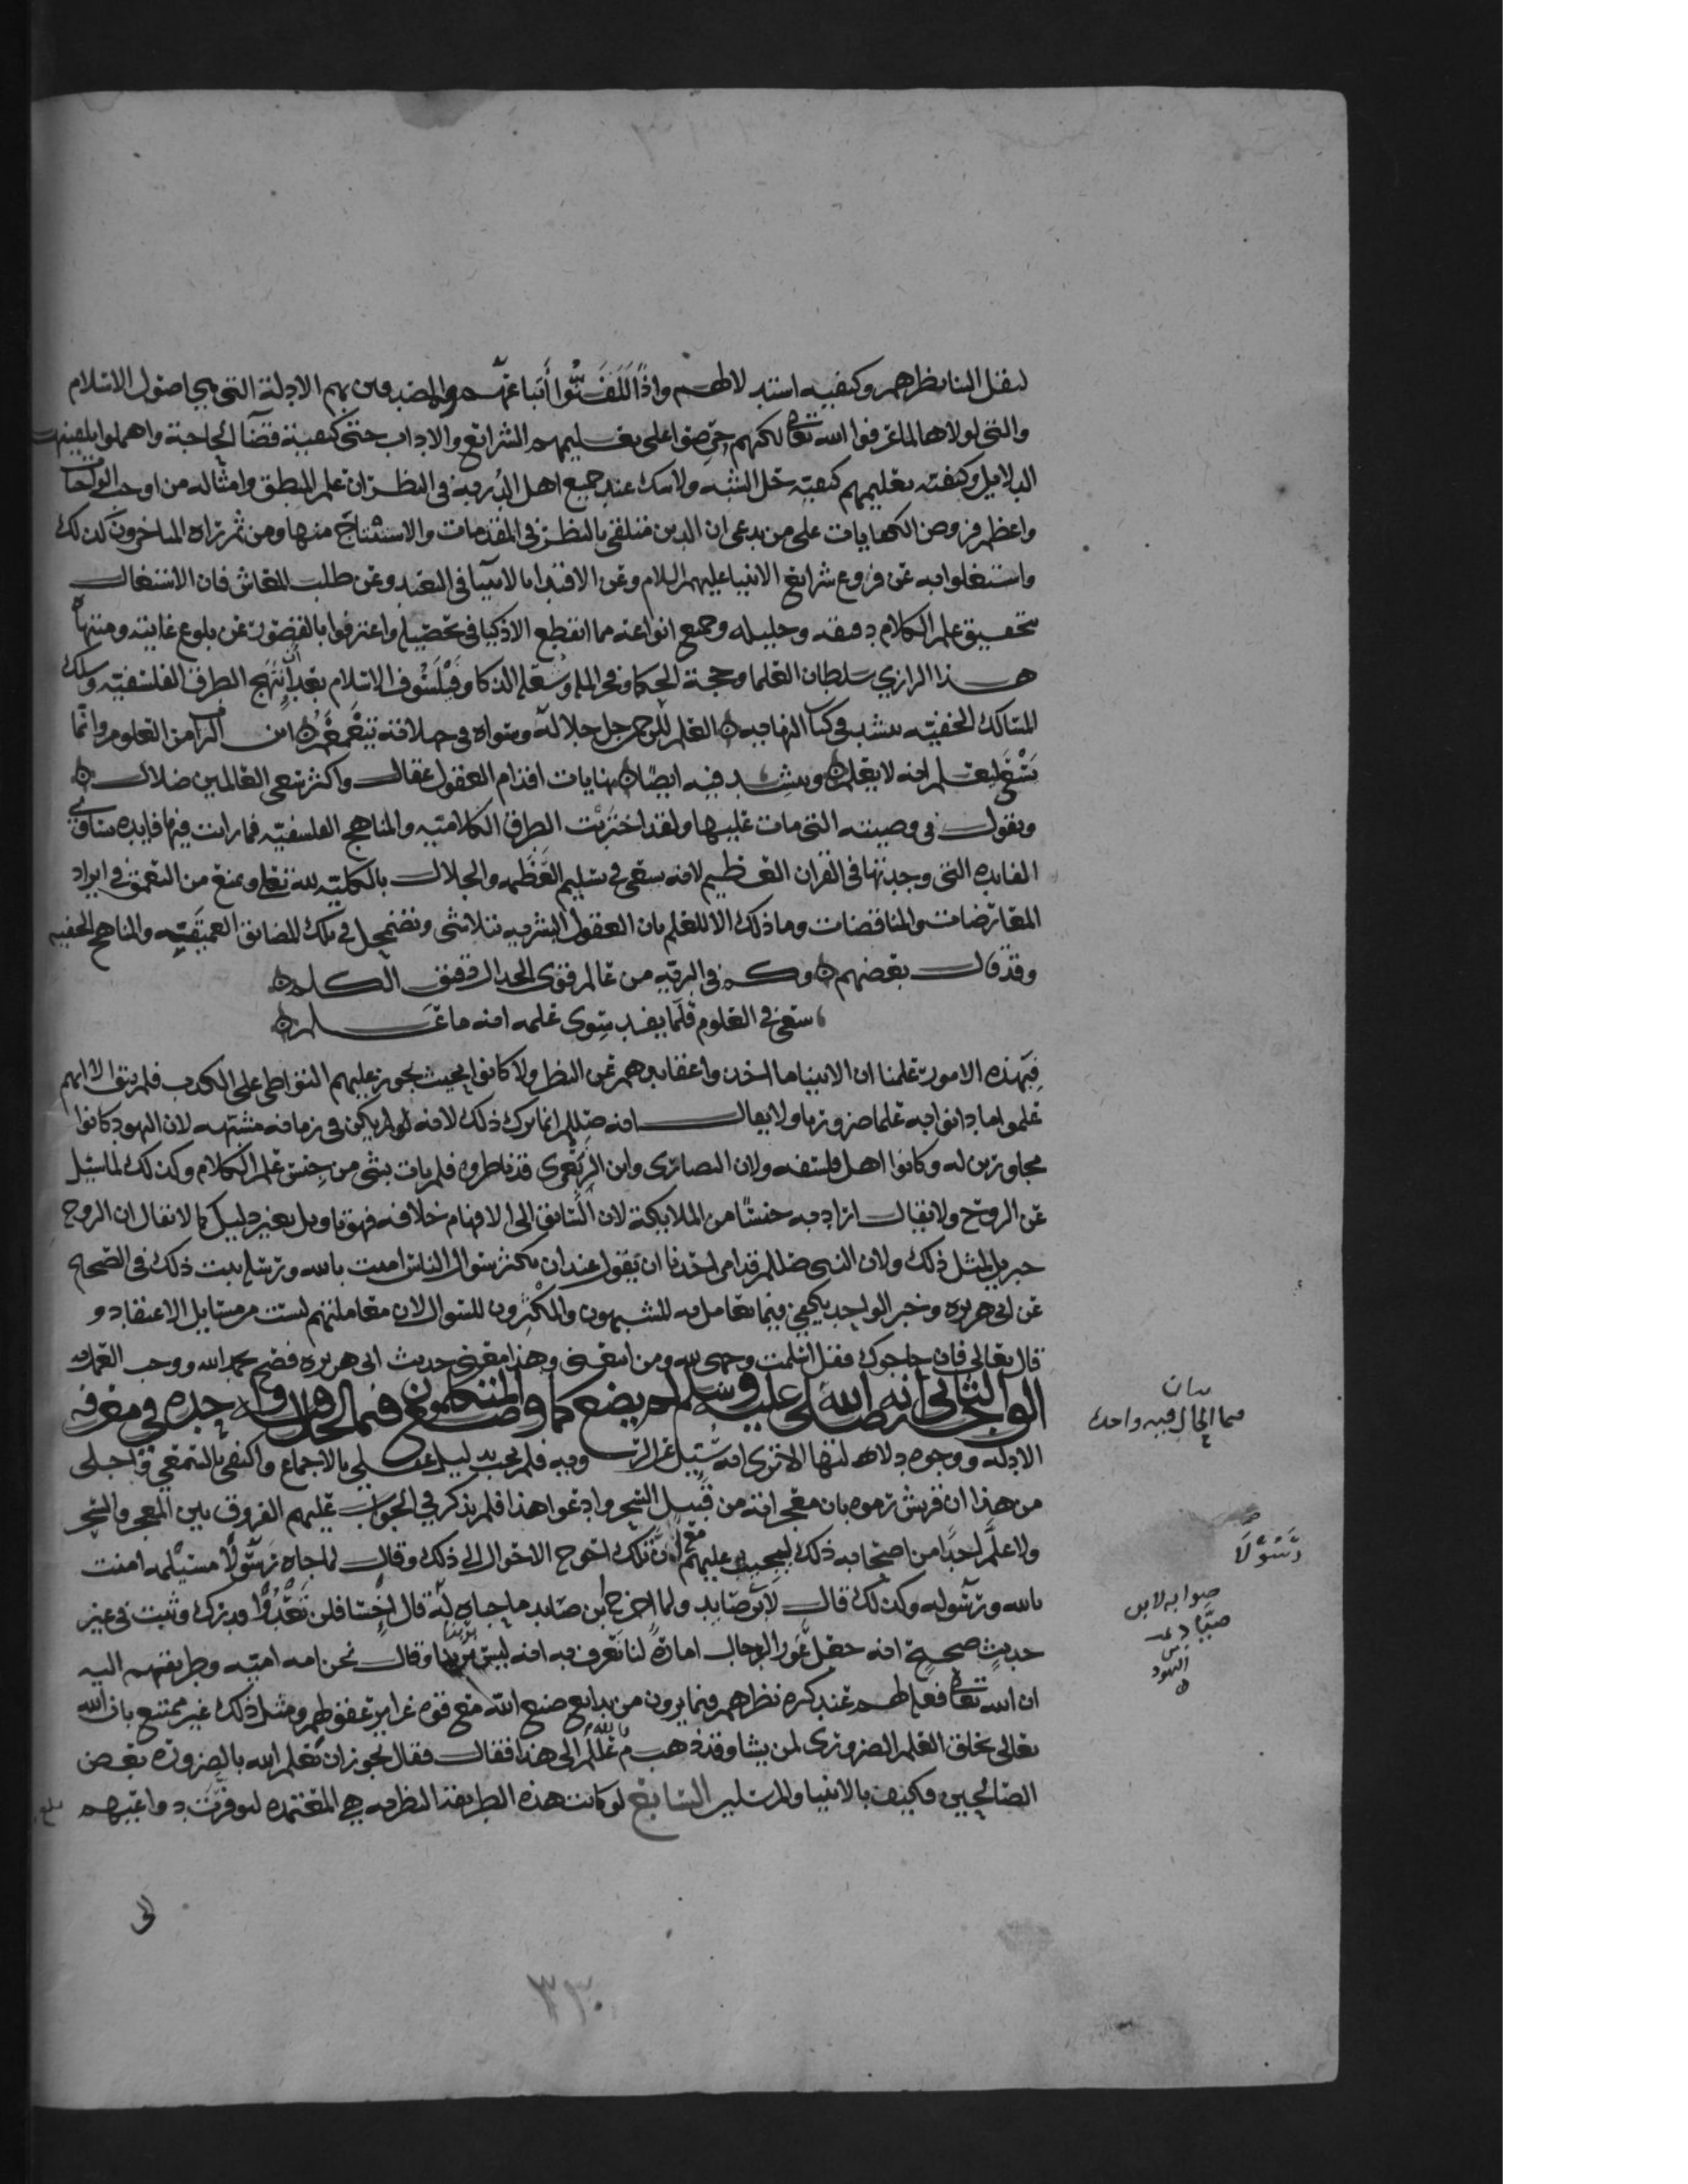 لنقل الينا نظرهم وكيفيه استدلالهم واذًا لَلَقَّنُوا أتباعهم والمصدقين بهم الادلة التي هي اصول الاسلام
والتي لولاها لما عرفوا الله تعالى لكنهم حرصوا على تعليمهم الشرائع والاداب حتى كيفية قضا الحاجة واهملوا تلقينهم
الدلايل وكيفية تعليمهم كيفية حل الشبه ولا شك عند جميع اهل الدربة في النظر ان علم المنطق وامثاله من اوجب الواجبات
واعظم فروض الكفايات على من يدعي ان الدين متلقى بالنظر في المقدمات والاستنتاج منها ومن ثم تراه المتاخرون كذلك
واشتغلوا به عن فروع شرايع الانبيا عليهم السلام وعن الاقتدا بالانبيا في التعبد وعن طلب المعاش فان الاشتغال
بتحقيق علم الكلام دقيقه وجليله وجميع انواعه مما انقطع الاذكيا في تحصيله واعترفوا بالقصور عن بلوغ غايته ومنتهاه
هذا الرازي سلطان العلما وحجة الحكما وفخر الملة وشعلة الذكا وفيلسوف الاسلام بعد أن انتهج الطرق الفلسفيه وسلك
المسالك الخفيه ينشد في كتاب النهاية العلم للرحمن جل جلاله وسواه في جهلاته يتغمغم اين التراب من العلوم وانما
يسعى ليعلم انه لا يعلم وينشد فيه ايضا نهايات اقدام العقول عقال واكثر سعي العالمين ضلال
ويقول في وصيته التي مات عليها ولقد اختبرت الطرق الكلامية والمناهج الفلسفيه فما رايت فيها فايده تساوي
الفايده التي وجدتها في القران العظيم لانه يسعى في تسليم العظمه والجلال بالكلية لله تعالى ويمنع من التعمق في ايراد
المعارضات والمناقضات وما ذلك الا للعلم بان العقول البشريه تتلاشى وتضمحل في تلك المضايق العميقه والمناهج الخفيه
وقد قال بعضهم وكم في البرية من عالم قوي الجدال دقيق الكلم
سعى في العلوم فلما يفد سوى علمه انه ما علم
فبهذه الامور علمنا ان الانبيا ما اخذوا عقايدهم عن النظر ولا كانوا بحيث يجوز عليهم التواطي على الكذب فلم يبق الا انهم
علموا ما دانوا به علما ضروريا ولا يقال انه صللم انما ترك ذلك لانه لم يكن في زمانه مشتبه لان اليهود كانوا
مجاورين له وكانوا اهل فلسفه ولان النصارى وابن الزبعرى قد ناظروه فلم يات بشي من جنس علم الكلام وكذلك لما سئل
عن الروح ولا يقال اراد به جنسًا من الملايكة لان السابق الى الافهام خلافه فهو تاويل بغير دليل كما لا يقال ان الروح
جبريل لمثل ذلك ولان النبي صللم قد امر احدنا ان يقول عند ان يكثر سوال الناس امنت بالله ورسله ثبت ذلك في الصحاح
عن ابي هريره وخبر الواحد يكفي فيما يعامل به المشبهون والمكثرون للسوال لان معاملتهم ليست من مسايل الاعتقاد و
قال تعالى فان حاجوك فقل اسلمت وجهي لله ومن اتبعني وهذا معنى حديث ابي هريره فصح بحمد الله ووجب العمل به
الوجه الثاني انه صلى الله عليه وسلم لم يضع كما وضع المتكلمون في الحال فيه واحده في معرفة
الادله ووجوه دلالتها الا ترى انه سئل عن الروح فلم يجب بدليل عقلي بالاجماع واكتفى بالسمعي واجلى
من هذا ان قريش رموه بان معجزاته من قبيل السحر وادعوا هذا فلم يذكر في الجواب عليهم الفروق بين المعجز والسحر
ولا علَّم احدًا من اصحابه ذلك ليجيب عليهم مع ان تلك احوج الاحوال الى ذلك وقال لما جاه رسولا مسيلمه امنت
بالله ورسوله وكذلك قال لابن صايد ولما احرج ابن صايد ما خباه له قال اخسأ فلن تعدو قدرك وثبت في غير
حديث صحيح انه جعل عور الدجال امارة لنا نعرف به انه ليس بربنا وقال نحن امه امية وطريقتهم اليه
ان الله تعالى فعله لهم عند كره نظرهم فيما يرون من بدايع صنع الله مع قوة غرايز عقولهم ومثل ذلك غير ممتنع بان الله
تعالى يخلق العلم الضروري لمن يشا وقد ذهب م بالله الى هذا فقال يجوز ان يَعلم الله بالضرورة بعض
الصالحين فكيف بالانبيا والمرسلين السابع لو كانت هذه الطريقة النظريه هي المعتمده لتوفرت دواعيهم
الى
بيان
فيما الحال فيه واحده
رَسُوْلَا
صوابه لابن
صيّاد
اليهود
٣٣٠